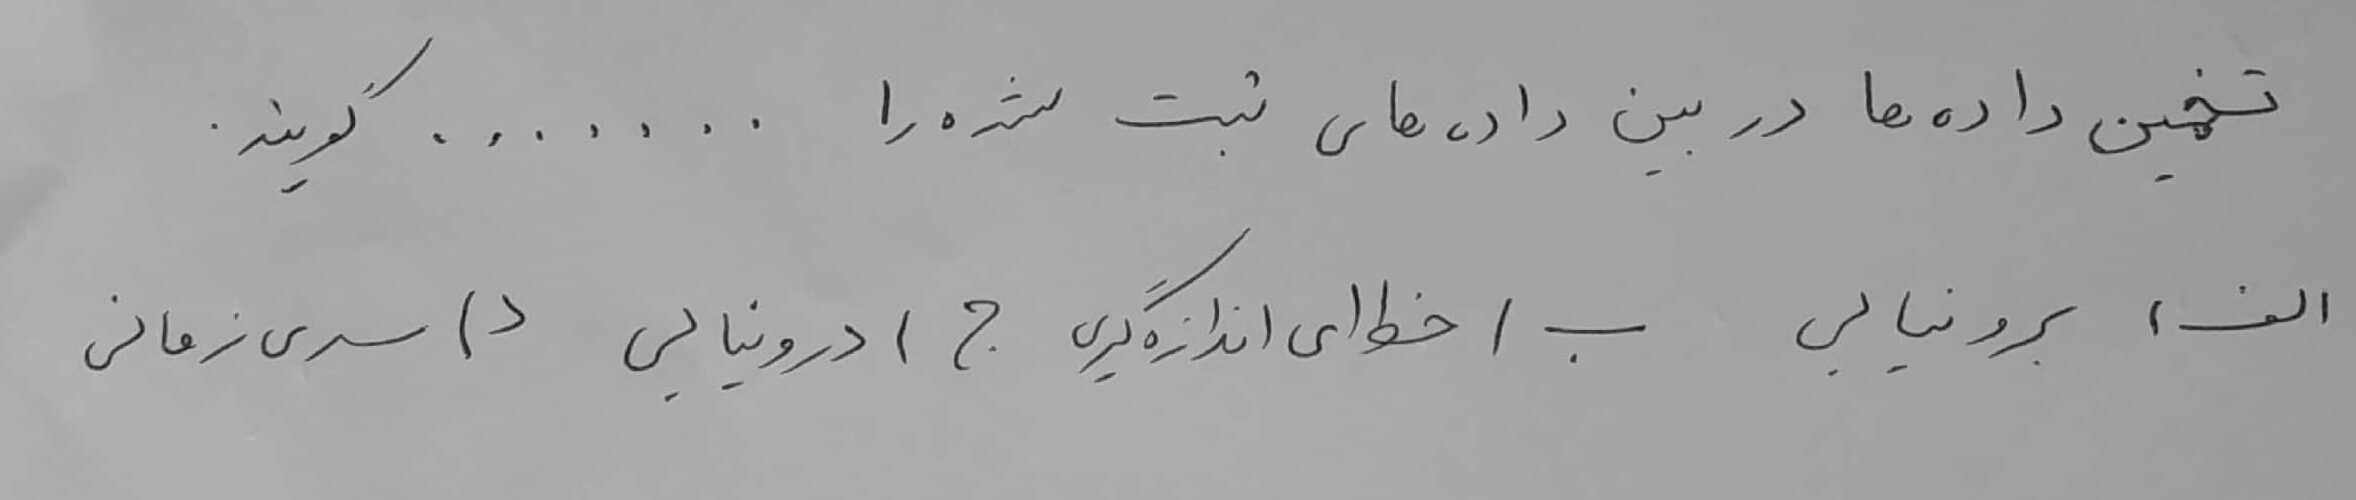 تخمین داده ها در بین داده های ثبت شده را ....... گویند.
الف) برونیابی ب) خطای اندازه گیری ج) درونیابی د) سری زمانی